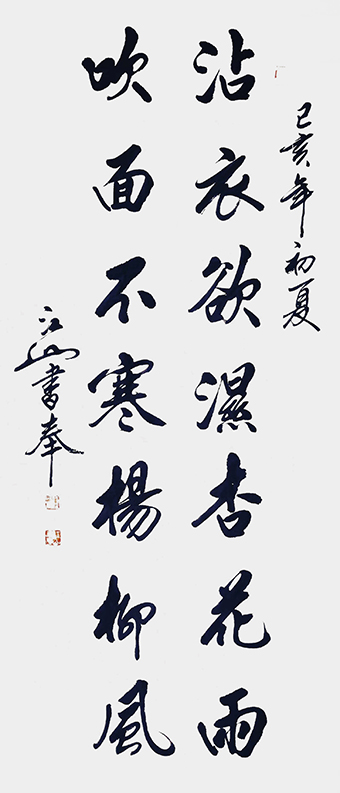 己亥年初夏
沾衣欲濕杏花雨
吹面不寒楊柳風
江山書奉